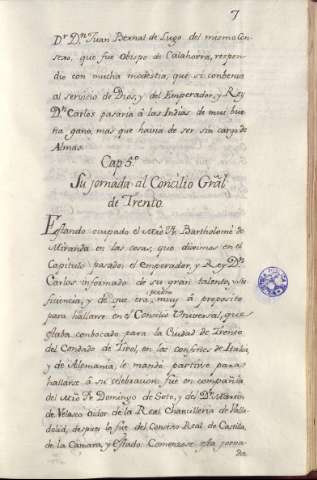 7
Dr. Dn. Juan Bernal de Lugo del mismo Con-
sexo, que fué Obispo de Calahorra, respon-
dio con mucha modestia, que si conbenia
al servicio de Dios, y del Emperador, y Rey
Dn. Carlos pasaria à las Indias de mui bue
na gana, mas que havia de ser sin cargo de
Almas.
Cap. 5.º
Su jornada al Concilio Grãl
de Trento.
Estando ocupado el Mro. Fr. Bartholomé de
Miranda en las cosas, que diximos en el
Capitulo pasado; el emperador, y Rey Dn.
Carlos informado de su gran talento, y su
ficiencia, y de que era muy à proposito
para hallarse en el Concilio Universal, que
estaba conbocado para la Ciudad de Trento
del Condado de Tirol, en los confines de Italia,
y de Alemania, le manda partirse para
hallarse à su celebracion; fué en compañia
del Mro. Fr. Domingo de Soto, y del Dr. Martin
de Velasco Oidor de la Real Chancilleria de Valla-
dolid, despues lo fué del Consexo Real de Castilla,
de la Camara, y Estado. Comenzose esta jorna
da